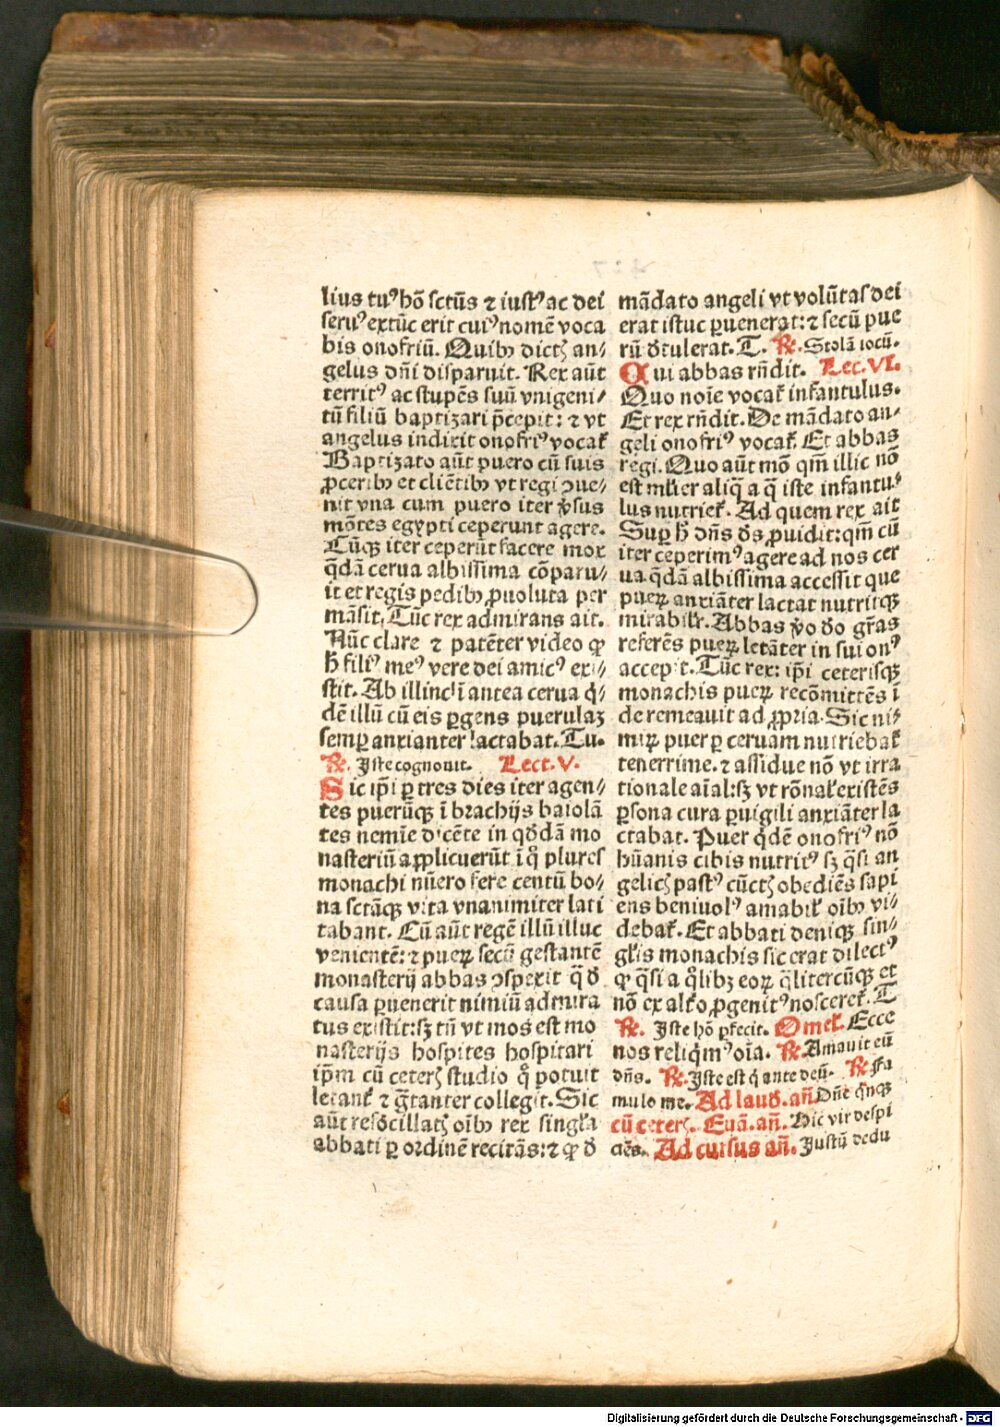 lius tuꝰ hō sctūs ⁊ iustꝰ ac dei
seruꝰ extūc erit cuiꝰ nomē voca
bis onofriū. Quibꝫ dictꝭ an⸗
gelus dn̄i disparuit. Rex aūt
territꝰ ac stupēs suū vnigeni⸗
tū filiū baptizari p̄cepit: ⁊ vt
angelus indixit onofriꝰ vocaꝛ̄
Baptizato aūt puero cū suis
ꝓceribꝫ et cliētibꝫ vt regi ꝯue⸗
nit vna cum puero iter v̓sus
mōtes egypti ceperunt agere.
Cūqꝫ iter ceperūt facere mox
q̄dā cerua albissima cōparu⸗
it et regis pedibꝫ ꝓuoluta per
māsit. Tūc rex admirans ait.
Nūc clare ⁊ patēter video ꝙ
h̄ filiꝰ meꝰ vere dei amicꝰ exi⸗
stit. Ab illinc ī antea cerua q̇⸗
dē illū cū eis ꝑgens puerulaꝫ
semꝑ anxianter lactabat. Tu.
℟. Iste cognouit. Lect. V.
Sic ip̄i ꝑ tres dies iter agen⸗
tes puerūqꝫ ī brachijs baiolā
tes nemīe dicēte in qͦddā mo
nasteriū applicuerūt ī qͦ plures
monachi nūero fere centū bo⸗
na sctāqꝫ vita vnanimiter lati
tabant. Cū aūt regē illū illuc
venientē: ⁊ pueꝝ secū gestantē
monasterij abbas ꝯspexit q̄ d̄
causa ꝑuenerit nimiū admira
tus existit: sꝫ tn̄ vt mos est mo
nasterijs hospites hospitari
ip̄m cū ceterꝭ studio qͦ potuit
letanꝛ̄ ⁊ gͣtanter collegit. Sic
aūt refocillatꝭ oībꝫ rex singĺa
abbati ꝑ ordinē recitās: ⁊ ꝙ d̄
mādato angeli vt volūtas dei
erat istuc ꝑuenerat: ⁊ secū pue
rū detulerat. T. ℟. Stolā iocū.
Qui abbas rn̄dit. Lec. VI.
Quo noīe vocaꝛ̄ infantulus.
Et rex rn̄dit. De mādato an⸗
geli onofriꝰ vocaꝛ̄. Et abbas
regi. Quo aūt mō qm̄ illic nō
est mĺier aliq̄ a q̄ iste infantu⸗
lus nutrieꝛ̄. Ad quem rex ait
Suꝑ h̄ dn̄s ds̄ ꝓuidit: qm̄ cū
iter ceperimꝰ agere ad nos cer
ua q̄dā albissima accessit que
pueꝝ anxiāter lactat nutritqꝫ
mirabilꝛ̄. Abbas v̓o deo gr̄as
referēs pueꝝ letāter in sui onꝰ
accepit. Tūc rex: ip̄i ceterisqꝫ
monachis pueꝝ recōmittēs ī
de remeauit ad ꝓpria. Sic ni⸗
miꝝ puer ꝑ ceruam nutriebaꝛ̄
tenerrime. ⁊ assidue nō vt irra
tionale aīal: sꝫ vt rōnaĺ existēs
ꝑsona cura ꝑuigili anxiāter la
ctabat. Puer q̇dē onofriꝰ nō
hūanis cibis nutritꝰ sꝫ q̄si an
gelicꝭ pastꝰ cūctꝭ obediēs sapi
ens beniuolꝰ amabiĺ oībꝫ vi⸗
debaꝛ̄. Et abbati deniqꝫ sin⸗
gĺis monachis sic erat dilectꝰ
ꝙ q̄si a qͦlibꝫ eoꝝ q̄litercūqꝫ et
nō ex alꝛ̄o ꝓgenitꝰ nosceret̄. T
℟. Iste hō ꝑfecit. Omeĺ. Ecce
nos reliqͥmꝰ oīa. ℟. Amauit eū
dn̄s. ℟. Iste est q̇ ante deū. ℟. Fa
mulo me. Ad laud. an̄. Dn̄e qͥnqꝫ
cū ceterꝭ. Euā. an̄. Hic vir despi
ciēs. Ad cursus an̄. Iustū dedu
Digitalisierung gefördert durch die Deutsche Forschungsgemeinschaft - DFG